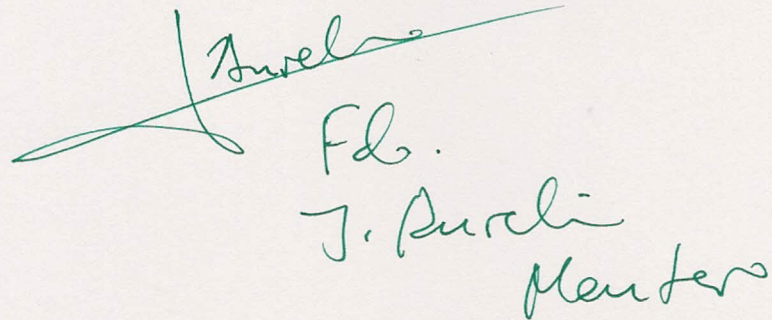 J Aurelio
Fdo.
J. Aurelio
Montero